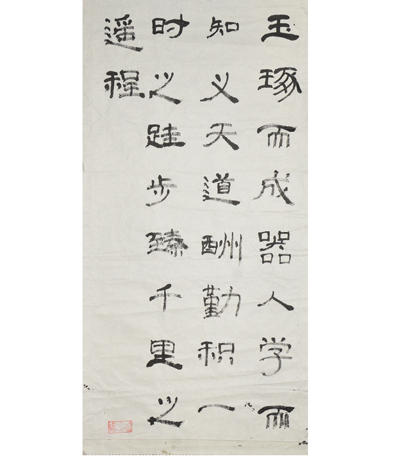 玉琢而成器人学而
知义天道酬勤积一
时之跬步臻千里之
遥程